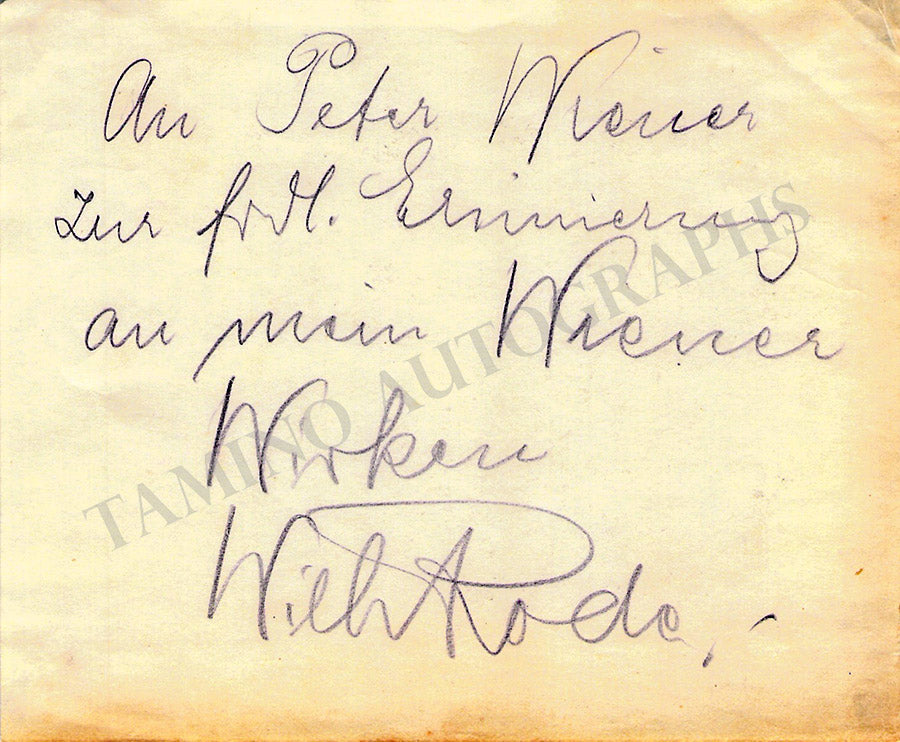 An Peter Wiener
zur frdl. Erinnerung
an mein Wiener
Wirken
Wilh Rode
TAMINO AUTOGRAPHS